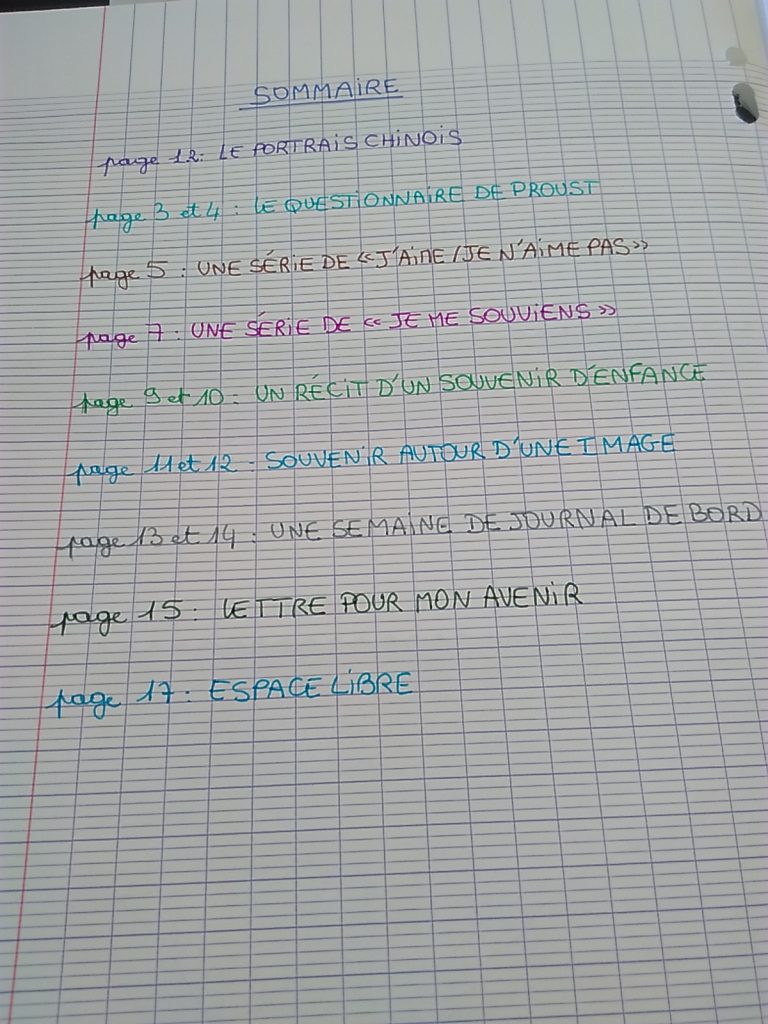 SOMMAIRE
page 12: LE PORTRAIS CHINOIS
page 3 et 4 : LE QUESTIONNAIRE DE PROUST
page 5 : UNE SÉRIE DE « J'AIME / JE N'AIME PAS »
page 7 : UNE SÉRIE DE « JE ME SOUVIENS »
page 9 et 10 : UN RÉCIT D'UN SOUVENIR D'ENFANCE
page 11 et 12 : SOUVENIR AUTOUR D'UNE IMAGE
page 13 et 14 : UNE SEMAINE DE JOURNAL DE BORD
page 15 : LETTRE POUR MON AVENIR
page 17 : ESPACE LIBRE